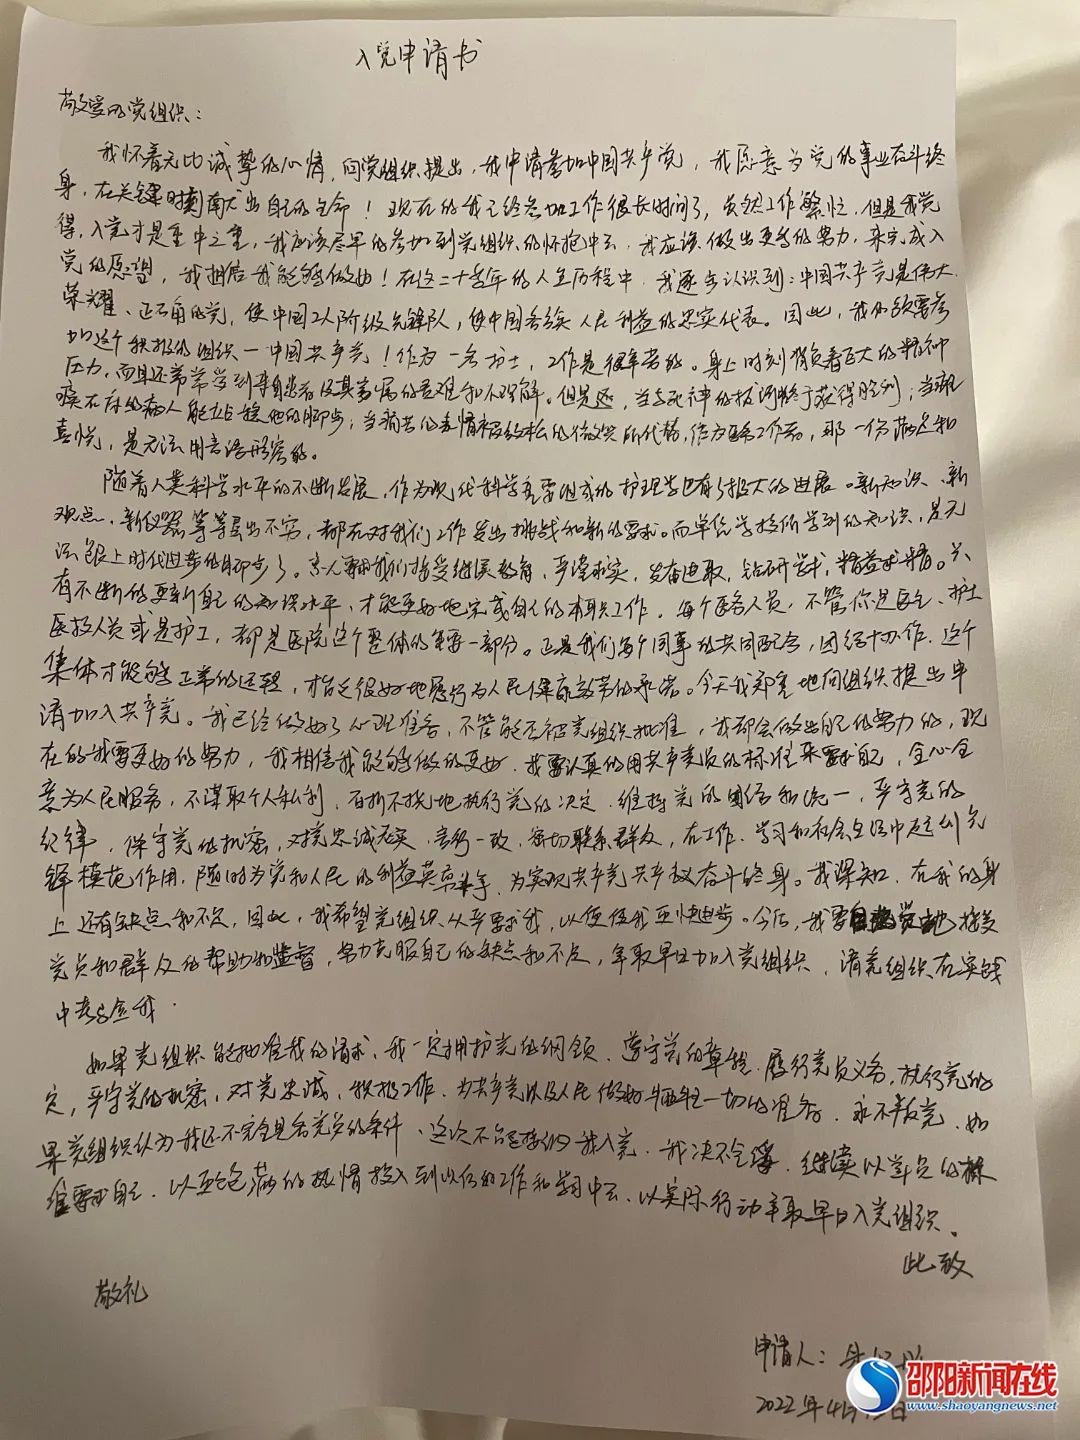 入党申请书
敬爱的党组织：
我怀着无比诚挚的心情，向党组织提出，我申请参加中国共产党，我愿意为党的事业奋斗终
身，在关键时刻献出自己的生命！现在的我已经参加工作很长时间了，虽然工作繁忙，但是我觉
得，入党才是重中之重，我应该尽早的参加到党组织的怀抱中去，我应该做出更多的努力，来完成入
党的愿望，我相信我能够做好！在这二十多年的人生历程中，我逐步认识到：中国共产党是伟大
荣耀、正确的党，使中国工人阶级先锋队，使中国各族人民利益的忠实代表。因此，我必须要参
加这个积极的组织一中国共产党！作为一名护士，工作是很辛苦的。身上时刻背负着巨大的精神
压力，而且还常常受到患者及其家属的责难和不理解。但是，当与死神的拔河终于获得胜利；当
病人能站起他的脚步；当痛苦的表情被轻松的微笑所代替，作为医务工作者，那一份满足和
喜悦，是无法用言语形容的。
随着人类科学水平的不断发展，作为现代科学重要组成的护理学也有了极大的进展。新知识、新
观点、新仪器等等层出不穷，都在对我们工作发出挑战和新的要求。而单凭学校所学到的知识，是无
法跟上时代进步的脚步了。这需要我们接受继续教育，严谨求实，发奋进取，钻研学术，精益求精。只
有不断的更新自己的知识水平，才能更好地完成自己的本职工作。每个医务人员，不管你是医生、护士
医技人员或是护工，都是医院这个整体的重要一部分。正是我们每个同事的共同配合，团结协作，这个
集体才能够正常的运转，才能很好地履行为人民健康服务的承诺。今天我郑重地向组织提出申
请加入共产党。我已经做好了心理准备，不管能否被党组织批准，我都会做出自己的努力的，现
在的我需要更好的努力，我相信我能够做的更好，我要认真的用共产党员的标准来要求自己，全心全
意为人民服务，不谋取个人私利，百折不挠地执行党的决定，维持党的团结和统一，严守党的
纪律，保守党的机密，对党忠诚老实，言行一致，密切联系群众，在工作、学习和社会生活中起到先
锋模范作用，随时为党和人民的利益英勇斗争，为实现共产党共产主义奋斗终身。我深知，在我的身
上还有缺点和不足，因此，我希望党组织从严要求我，以便使我更快进步。今后，我要自觉地接受
党员和群众的帮助和监督，努力克服自己的缺点和不足，争取早日加入党组织，请党组织在实践
中考验我。
如果党组织能批准我的请求，我一定拥护党的纲领，遵守党的章程，履行党员义务，执行党的决
定，严守党的机密，对党忠诚，积极工作，为共产党以及人民做好牺牲一切的准备，永不叛党，如
果党组织认为我还不完全具备党员的条件，这次不能接纳我入党，我决不气馁，继续以党员的标
准要求自己，以更饱满的热情投入到以后的工作和学习中去，以实际行动争取早日入党组织。
此致
敬礼
申请人：
2022年4月
邵阳新闻在线
www.shaoyangnews.net